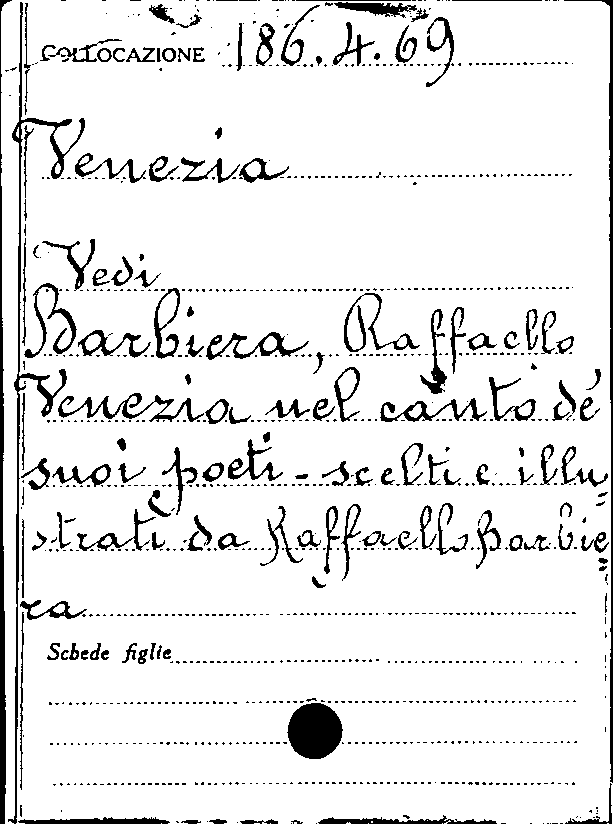 COLLOCAZIONE 186.4.69
Venezia
Vedi
Barbiera, Raffaello
Venezia nel canto de'
suoi poeti - scelti e illu=
strati da Raffaello Barbie=
ra
Schede figlie